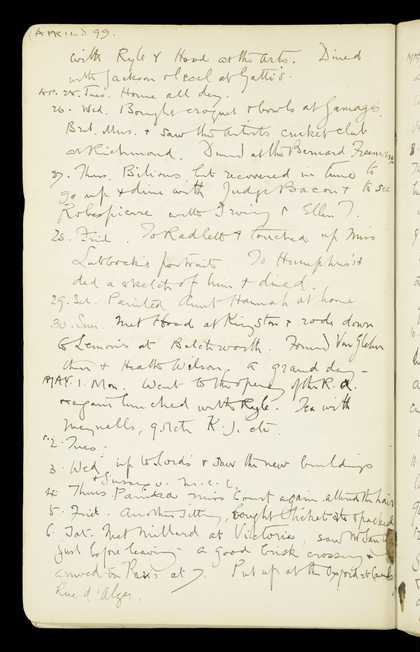 (APRIL) 99.
with Ryle & Hood at the Arts. Dined
with Jackson & Cecil at Gatti's.
Ap. 25. Tues. Home all day.
26. Wed. Bought croquet & bowls at Gamages.
Brit. Mus. & saw the artists cricket club
at Richmond. Dined at the Bernard
27. Thus. Bilious, but recovered in time to
go up & dine with Judge Bacon & to see
Robespierre with Irving & Ellen T.
28. Frid. To Radlett & touched up Miss
Lubbock's portraits To Humphries &
did a sketch of him & dined.
29. Sat. Painted Aunt Hannah at home
30. Sun. Met Hood at Kingston & rode down
to Lemon's at Betchworth. Found Van
there & Heath Wilson. A grand day –
MAY. 1. Mon. Went to the opening of the R.A.
again lunched with Ryle. Tea with
Meynells, K. J. etc.
2. Tues.
3. Wed. up to Lords & saw the new buildings
& Sussex v. M.C.C.
4. Thurs Painted Miss Court again. altered the hair
5. Frid. Another sitting, bought tickets & packed
6. Sat. Met Millard at Victoria, saw
just before leaving – a good brisk crossing &
arrived in Paris at 7. Put up at the Oxford &
Rue d'Alger.